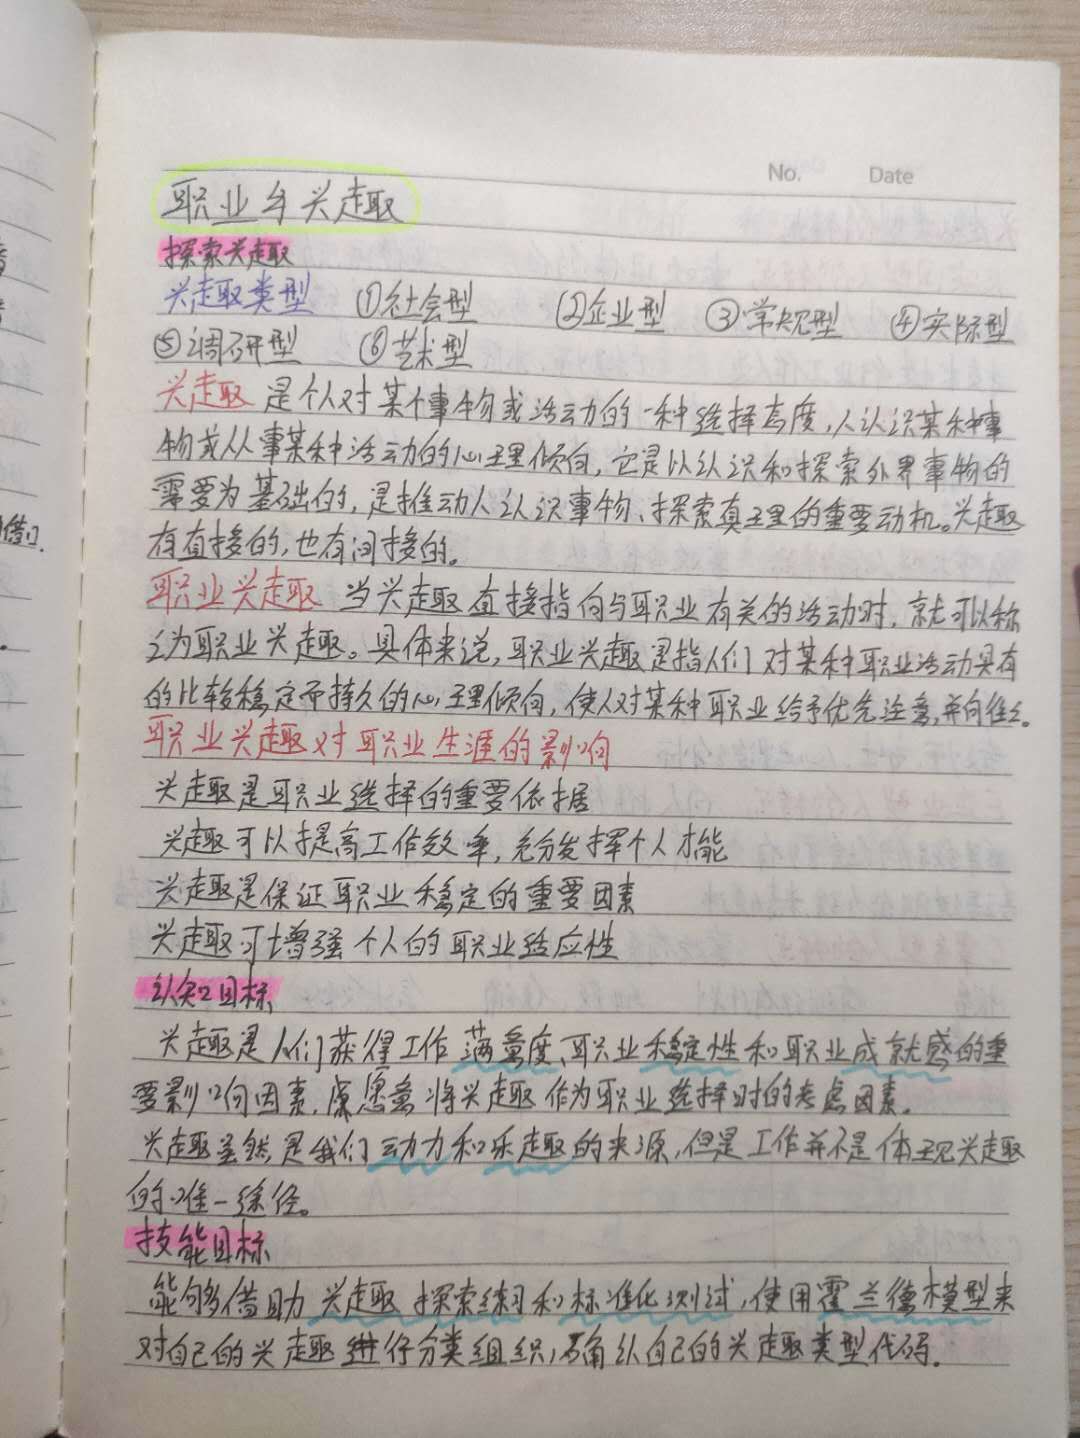 No. Date
职业与兴趣
探索兴趣
兴趣类型 ①社会型 ②企业型 ③常规型 ④实际型
⑤调研型 ⑥艺术型
兴趣 是个人对某个事物或活动的一种选择高度,人认识某种事
物或从事某种活动的心理倾向,它是以认识和探索外界事物的
需要为基础的,是推动人认识事物、探索真理的重要动机。兴趣
有直接的,也有间接的。
职业兴趣 当兴趣直接指向与职业有关的活动时,就可以称
之为职业兴趣。具体来说,职业兴趣是指人们对某种职业活动具有
的比较稳定而持久的心理倾向,使人对某种职业给予优先注意,并向往之。
职业兴趣对职业生涯的影响
兴趣是职业选择的重要依据
兴趣可以提高工作效率,充分发挥个人才能
兴趣是保证职业稳定的重要因素
兴趣可增强个人的职业适应性
认知目标
兴趣是人们获得工作满意度、职业稳定性和职业成就感的重
要影响因素,愿意将兴趣作为职业选择时的考虑因素.
兴趣虽然是我们动力和乐趣的来源,但是工作并不是体现兴趣
的唯一途径。
技能目标
能够借助兴趣探索练习和标准化测试,使用霍兰德模型来
对自己的兴趣进行分类组织,确认自己的兴趣类型代码.
借